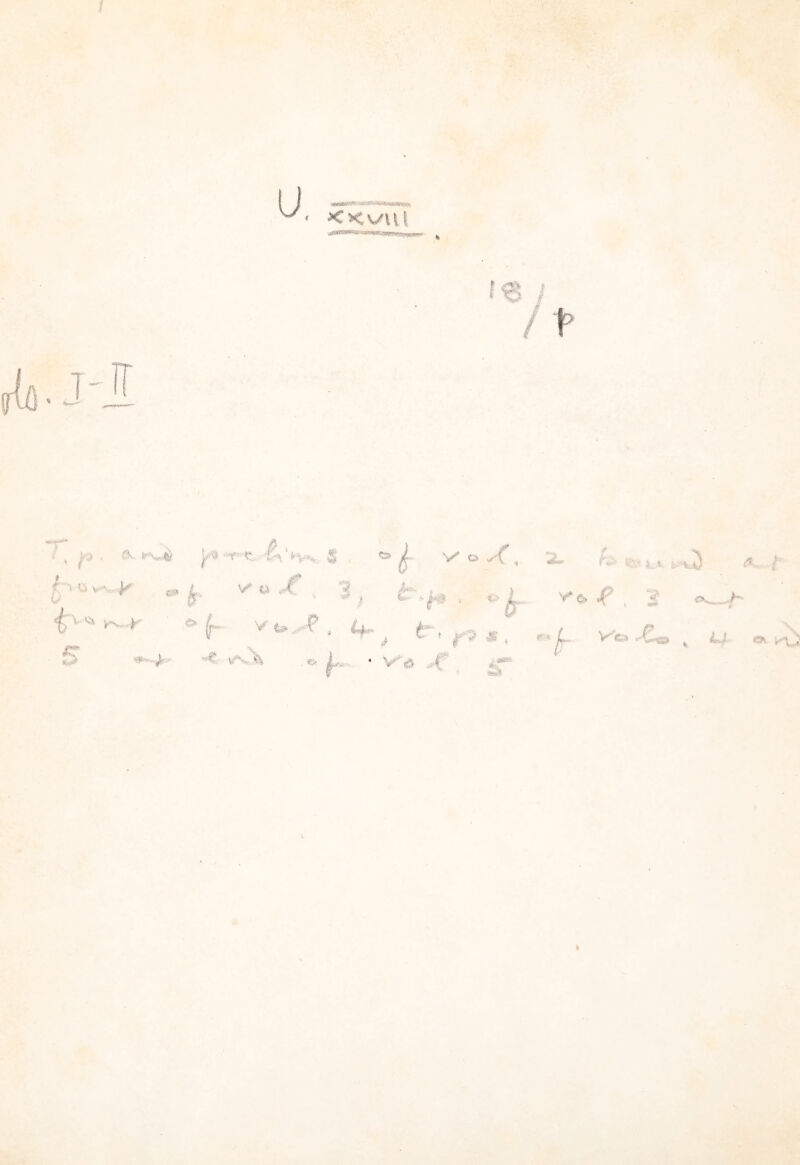 U. xxviii.
18/p
ols. I-II
T.p. and prelims. of vol. 2 bound at
front of vol. 3, t.p. of vol. 3 at
front of vol. 4, t.ps. of vols. 4 and
5 at end of vol. 5